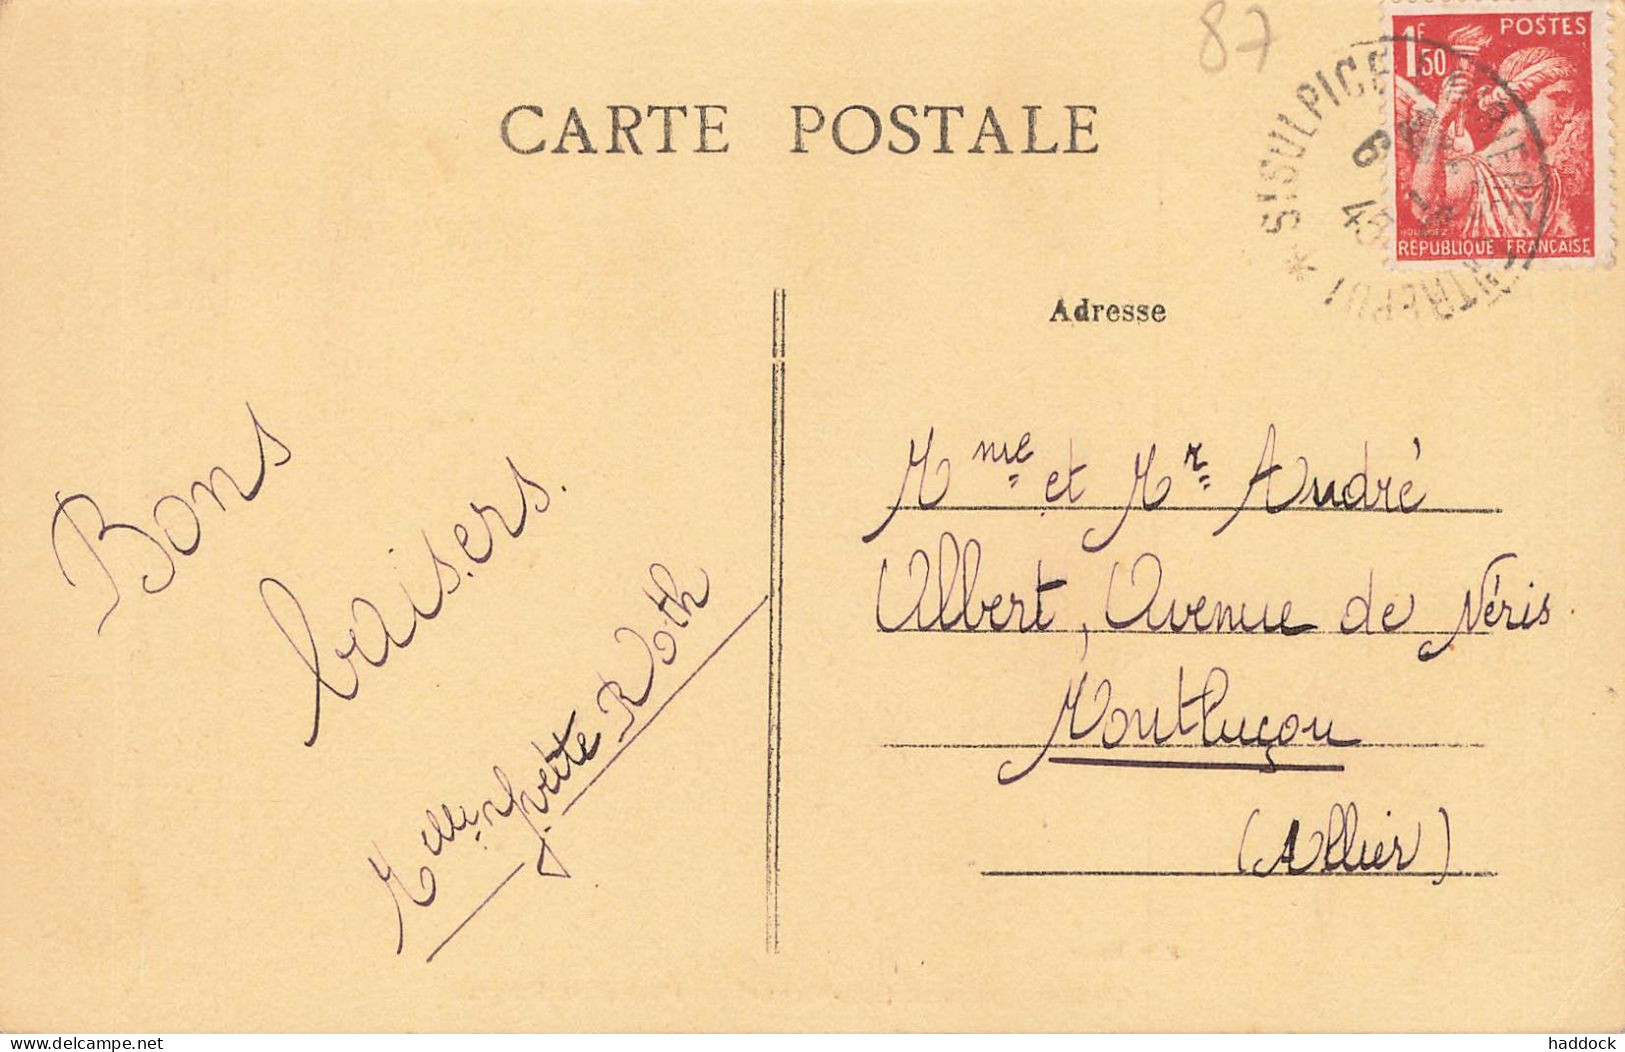 87
1F50 POSTES
CARTE POSTALE
ST SULPICE
6
45
HOURRIEZ
RÉPUBLIQUE FRANÇAISE
Adresse
Bons
baisers.
Melle Yvette Roth
Mme et Mr André
Albert, Avenue de Néris.
Montluçon
(Allier)
delcampe.net
haddock